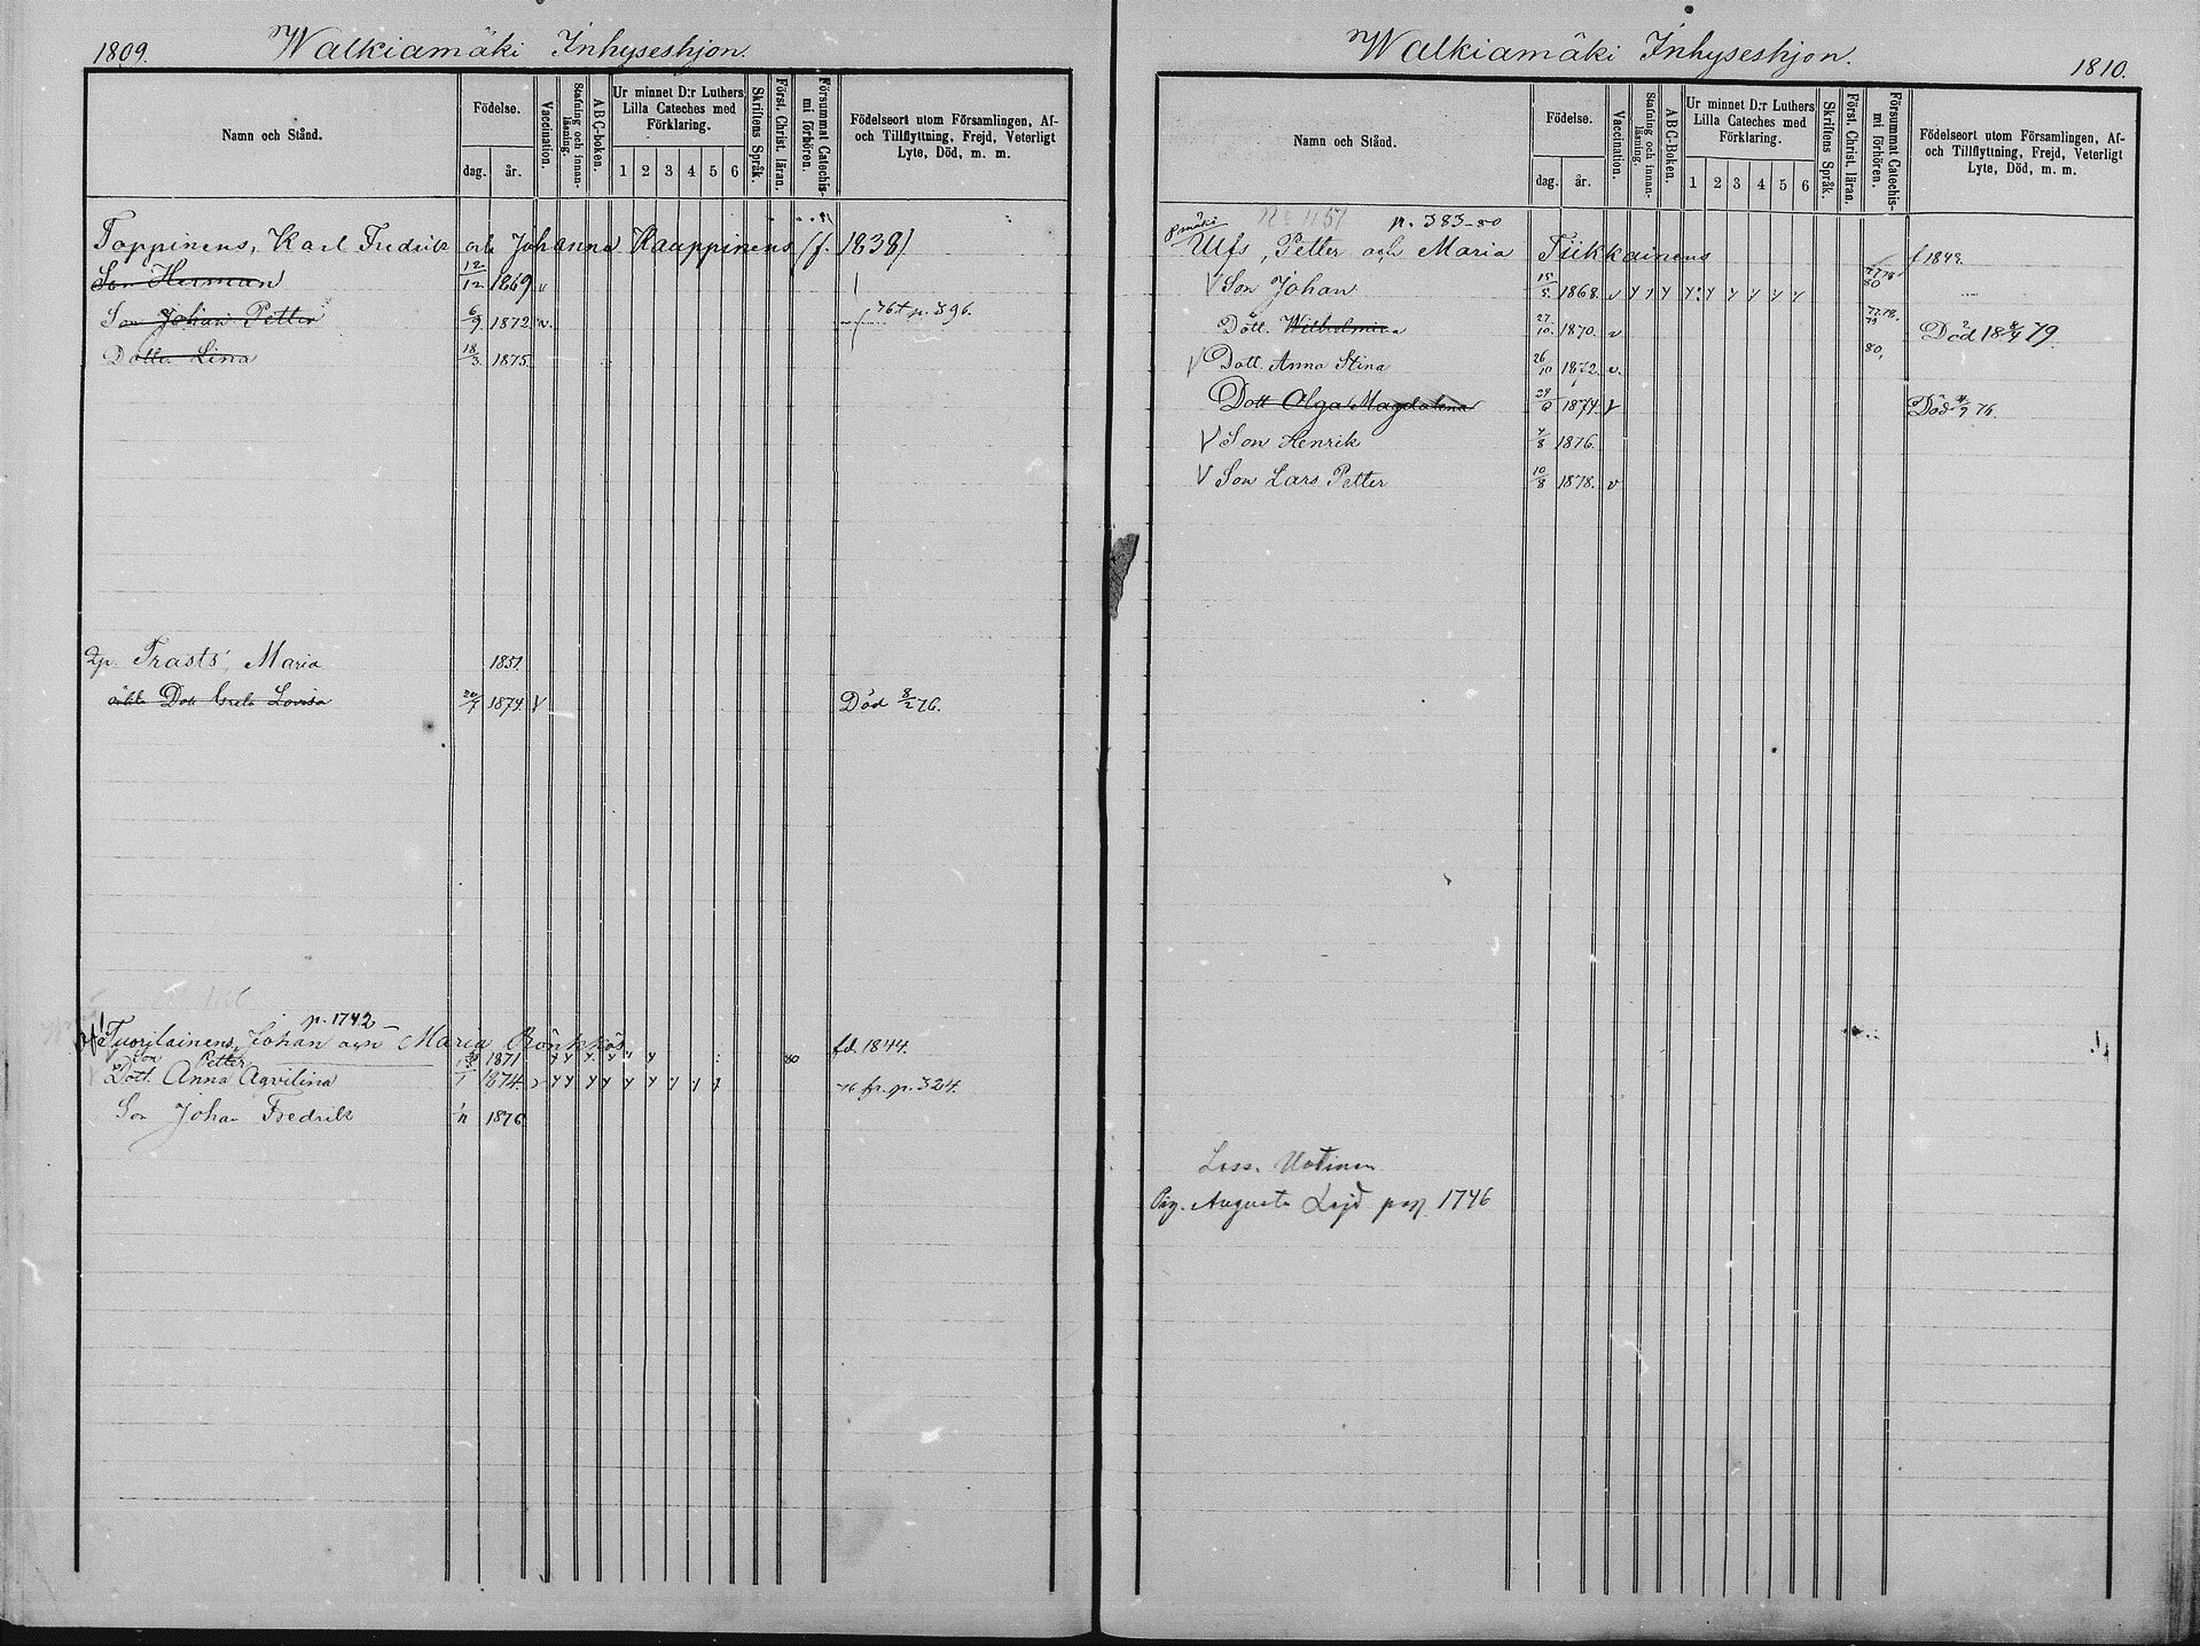 1809.
Walkiamäki Inhyseshjon.
Namn och Stånd.
Födelse.
dag.
år.
Vaccination.
Stafning och innan-
läsning.
ABC-boken.
Ur minnet D:r Luthers
Lilla Cateches med
Förklaring.
1 2 3 4 5 6
Skriftens Språk.
Först. Christ. läran.
Försummat Catechis-
mi förhören.
Födelseort utom Församlingen, Af-
och Tillflyttning, Frejd, Veterligt
Lyte, Död, m. m.
Toppinens, Karl Fredrik och Johanna Kauppinens (f. 1838)
Son Herman 12/12 1869 v
Son Johan Petter 6/9 1872 v. 76 p. 396.
Dottr. Lina 18/3 1875
Trasts, Maria 1851.
Dott Greta Lovisa 1874 V Död 8/2 76.
p. 1742
Tuorilainens, Johan och Maria Rönkkös fd. 1844.
Son Petter 1871 y y y y y y 80
Dott. Anna Aqvilina 1874 v y y y y y y y y y 76 fr. p. 324.
Son Johan Fredrik 1876
Walkiamäki Inhyseshjon.
1810.
Namn och Stånd.
Födelse.
dag.
år.
Vaccination.
Stafning och innan-
läsning.
ABC-Boken.
Ur minnet D:r Luthers
Lilla Cateches med
Förklaring.
1 2 3 4 5 6
Skriftens Språk.
Först. Christ. läran.
Försummat Catechis-
mi förhören.
Födelseort utom Församlingen, Af-
och Tillflyttning, Frejd, Veterligt
Lyte, Död, m. m.
p. 383-80
Ulfs, Petter och Maria Tiikkainens f 1842.
V Son Johan 15/5. 1868. v y y y y y y y y y 77 78 80
Dött. Wilhelmina 27/10. 1870. v 77 78. 79 Död 18 79
V Dött. Anna Stina 26/10 1872. v. 80,
Dott Olga Magdalena 1874 V Död 76.
V Son Henrik 4/8 1876.
V Son Lars Petter 10/8 1878. v
Lars. Uotinen
Pig. Augusta pag. 1746